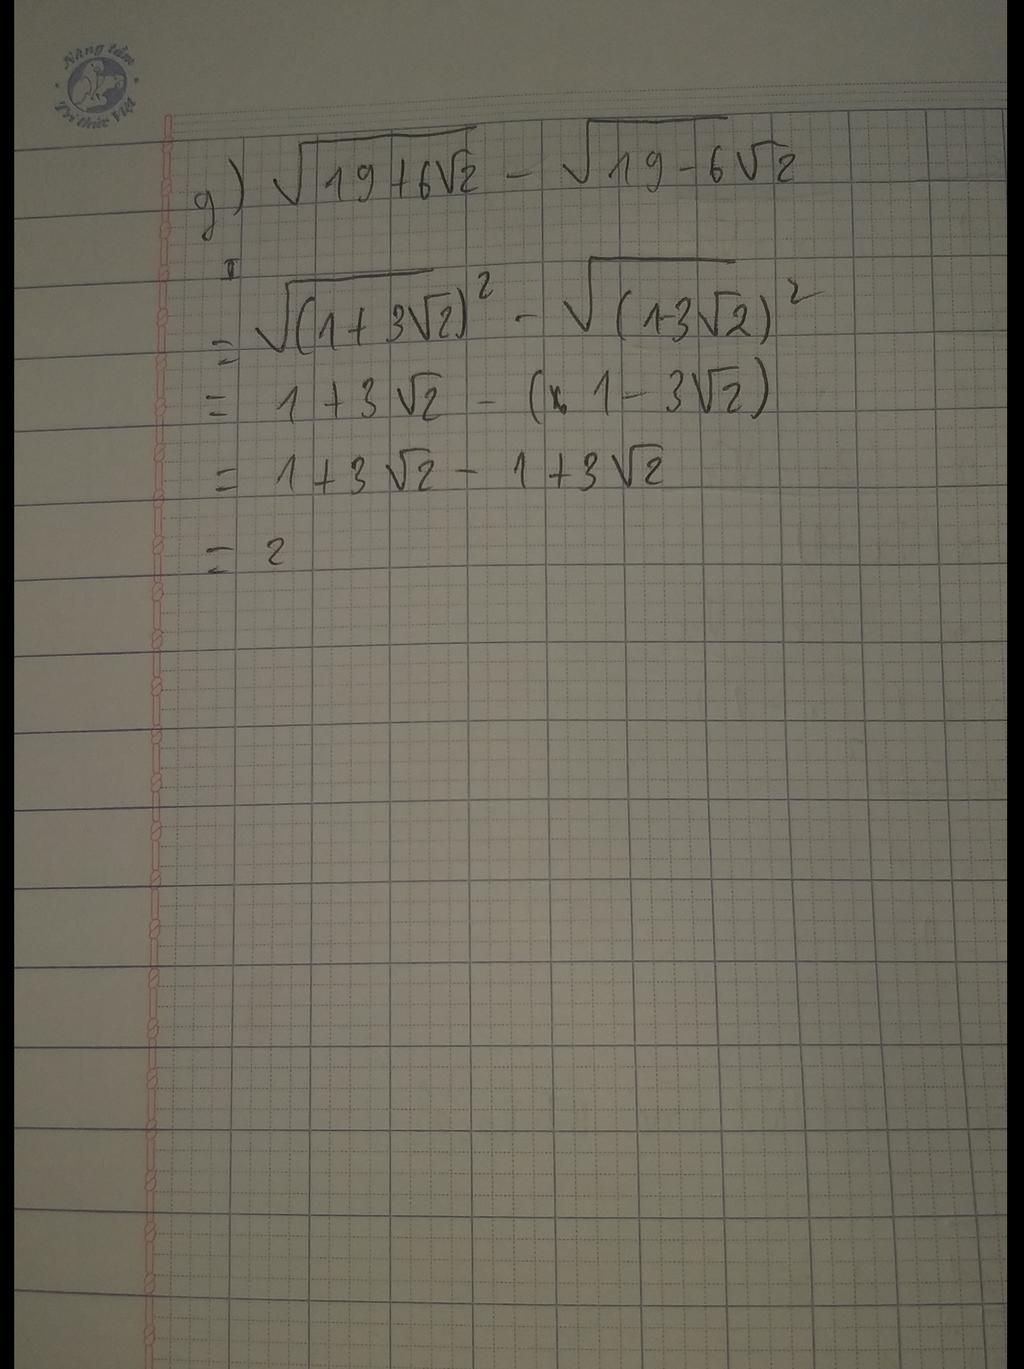 Nâng tầm
Tri thức Việt
g) √(19+6√2) - √(19-6√2)
= √(1+3√2)² - √(1-3√2)²
= 1+3√2 - (1-3√2)
= 1+3√2 - 1+3√2
= 2